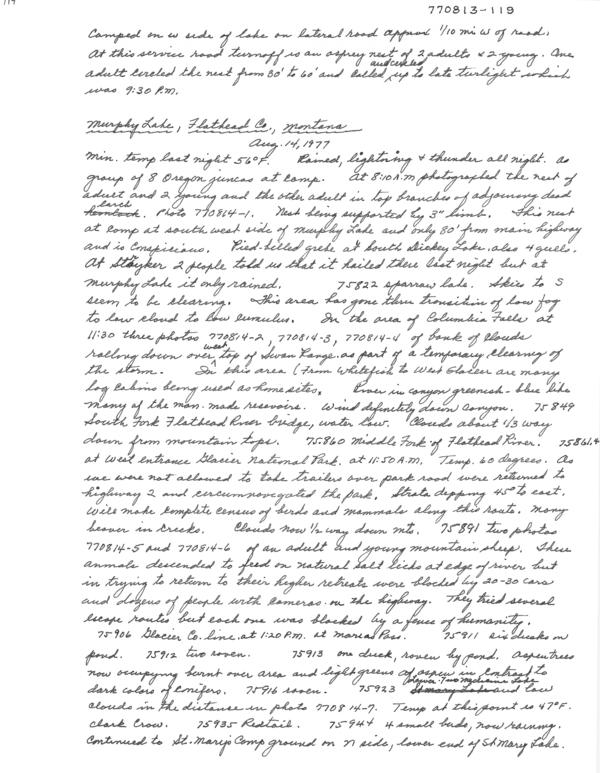 119
770813-119
Camped on w side of lake on lateral road approx 1/10 mi W of road.
At this service road turnoff is an osprey nest of 2 adults & 2 young. One
adult circled the nest from 30' to 60' and called and circled up to late twilight which
was 9:30 P.M.
Murphy Lake, Flathead Co., Montana
Aug. 14, 1977
Min. temp last night 56°F. Rained, lightning & thunder all night. a
group of 8 Oregon juncos at camp. At 8:10 A.M photographed the nest of
adult and 2 young and the other adult in top branches of adjoining dead
larch. Photo 770814-1. Nest being supported by 3" limb. This nest
at camp at south west side of Murphy Lake and only 80' from main highway
and is conspicious. Pied-billed grebe at South Dickey Lake. also 4 gulls.
At Stryker 2 people told us that it hailed there last night but at
Murphy Lake it only rained. 75822 sparrow hawk. Skies to S
seem to be clearing. This area has gone thru transition of low fog
to low cloud to low cumulus. In the area of Columbia Falls at
11:30 three photos 770814-2, 770814-3, 770814-4 of bank of clouds
rolling down over west top of Swan Range as part of a temporary clearing of
the storm. In this area (from Whitefish to West Glacier are many
log cabins being used as home sites. River in canyon greenish-blue like
many of the man-made resevoirs. Wind definitely down canyon. 75849
South Fork Flathead River bridge, water low. Clouds about 1/3 way
down from mountain tops. 75860 Middle Fork of Flathead River. 75861.4
at West entrance Glacier National Park. at 11:50 A.M. Temp. 60 degrees. As
we were not allowed to take trailers over park road were returned to
highway 2 and circumnavegated the park. Strata depping 45° to east.
Will make complete census of birds and mammals along this route. Many
beaver in creeks. Clouds now 1/2 way down mt. 75891 two photos
770814-5 and 770814-6 of an adult and young mountain sheep. These
anmals descended to feed on natural salt licks at edge of river but
in trying to return to their higher retreats were blocked by 20-30 cars
and dozens of people with cameras on the highway. They tried several
escape routes but each one was blocked by a fence of humanity.
75906 Glacier Co. line. at 1:20 P.M. at Marias Pass. 75911 six ducks on
pond. 75912 two raven. 75913 one duck, raven by pond. Aspen trees
now occupying burnt over area and light greens of aspen in contrast to
dark colors of conifers. 75916 raven. 75923 Lower Two Medicine Lake and low
clouds in the distance in photo 770814-7. Temp at this point is 47°F.
Clark Crow. 75935 Redtail. 75944 4 small birds, now raining.
Continued to St. Mary's Camp ground on N side, lower end of St Mary Lake.